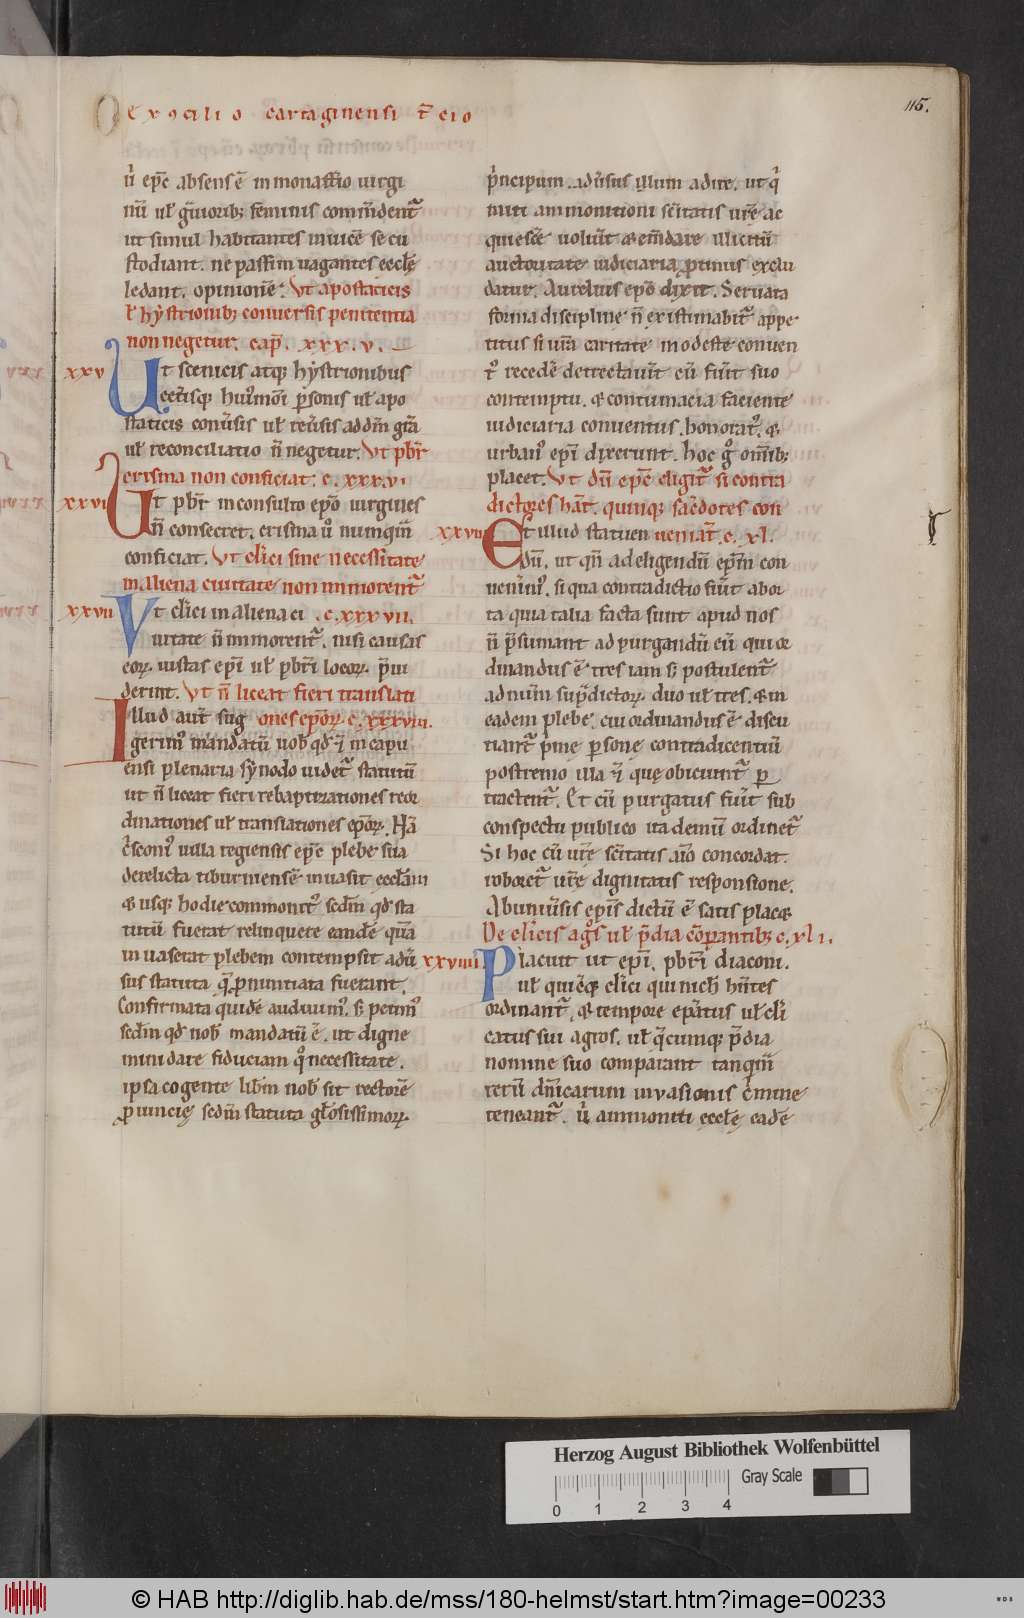 115.
Ex ↄcilio cartaginensi t̄cio
ũ ep̄c absens ē in monasťio uirgi
nũ ul̓ g̃uiorib; feminis com̃ident᷑
ut simul habitantes inuicē se cu
stodiant. ne passim uagantes eccłę
ledant. opinionē. Vt apostaticis
ł hẏstrionib; conuersis penitentia
non negetur. cap̃. xxx.v.
xxv
Ut scenicis atq; hẏstrionibus
cet̓isq; hui᷒mõi p̱sonis ul̓ apo
staticis conũsis ul̓ reũsis ad dñm gr̃a
ul̓ reconciliatio ñ negetur. Vt pbr̃
crisma non conficiat. c. xxx.vi
xxvi
Ut pbr̃ inconsulto epõ uirgines
ñ consecret. crisma ů nunq̃m
conficiat. Vt cl̓ici sine necessitate
in aliena ciuitate non inmorent᷑
xxvii
Vt cl̓ici in aliena ci .c. xxxvii.
uitate ñ inmorent᷑. nisi causas
eoꝝ iustas ep̃i ul̓ pbr̃i locoꝝ p̱ui
derint. Vt ñ liceat fieri translati
Illud aut̃ sug ones ep̃oꝝ c. xxxviii.
gerim᷒ mandatũ nob̓ qd̓ ⁊̃ in capu
ensi plenaria sẏnodo uidet᷑ statutũ
ut ñ liceat fieri rebaptizationes reor
dinationes ul̓ translationes ep̃oꝝ. Nã
c̓sconi᷒ uilla regiensis ep̄c plebe sua
derelicta tiburniensē inuasit eccłam
⁊ usq; hodie commonit᷒ sedm̃ qd̓ sta
tutũ fuerat relinquere eandē quã
inuaserat plebem contempsit adũ
sus statuta q̃ ꝓnuntiata fuerant.
Confirmata quidē audiuim᷒. s; petim᷒
sedm̃ qd̓ nob̓ mandatũ ē. ut digne
mini dare fiduciam q̊ necessitate.
ipsa cogente lib̓m nob̓ sit rectorē
ꝓuincię sedm̃ statuta gł̓osissimoꝝ
p̓ncipum. adũsus illum adire. ut q̓
miti ammonitioni sc̃itatis ur̃e ac
quiescē noluit̓ ⁊ em̃dare illicitũ
auctoritate iudiciaria ꝓtinus exclu
datur. Aurelius epõ dixit. Seruata
forma discipline ñ existimabit᷑ appe
titus si ur̃a caritate modeste conuen
t᷒ recedē detrectauit̓ cũ fũit suo
contemptu. ⁊ contumacia faciente
iudiciaria conuentus. honorat᷒. ⁊
urban᷒ ep̃i dixerunt. hoc g̊ om̃ib;
placet. Vt dũ ep̄c eligit᷑ si contra
dictores hãt. quinq; sac̓dotes con
xxviii
Et illud statuen ueniãt. c. xl.
dũ. ut qñ ad eligendũ ep̃m con
uenim᷒. si qua contradictio fũit abor
ta quia talia facta sunt apud nos
ñ p̓sumant ad purgandũ cũ qui or
dinandus ē tres iam s; postulent᷑
ad num̃ sup̱dictoꝝ duo ul̓ tres. ⁊ in
eadem plebe. cui ordinandus ē discu
tiant᷑ p̓me p̱sone contradicentiũ
postremo illa ⁊̃ quę obiciunt᷑ p̱
tractent᷑. Et cũ purgatus fũit sub
conspectu publico ita demũ ordinet᷑
Si hoc cũ ur̃e sc̃itatis aĩo concordat.
roboret᷑ ur̃e dignitatis responsione.
Ab uniũsis ep̃is dictũ ē satis placeꝫ
De cl̓icis ag̊s ul̓ p̃dia cõparantib; c. xl i.
xxviiii
Placuit ut ep̃i. pbr̃i diaconi.
ul̓ quicũq; cl̓ici qui nich̓ hñtes
ordinant᷑. ⁊ tempore ep̃atus ul̓ cl̓i
catus sui agros. ul̓ q̃cumq; p̃dia
nomine suo comparant tanq̃m
rerũ dñicarum inuasionis c̓mine
teneant᷑. ũ ammoniti eccłę eadē
Herzog August Bibliothek Wolfenbüttel
Gray Scale
0 1 2 3 4
© HAB http://diglib.hab.de/mss/180-helmst/start.htm?image=00233